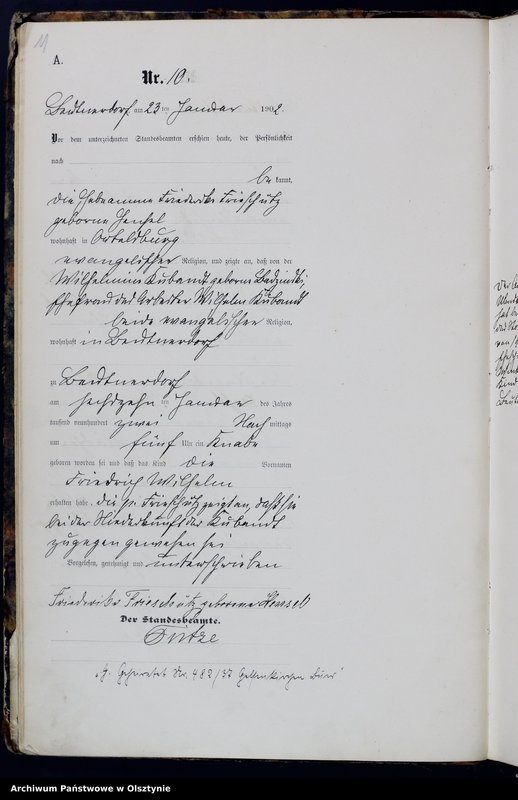 11
A.
Nr. 10.
Beutnerdorf am 23 ten Januar 1902.
Vor dem unterzeichneten Standesbeamten erschien heute, der Persönlichkeit
nach
be kannt,
die Hebeamme Friederike Frieschütz
geborne Hensel
wohnhaft in Ortelsburg
evangelischer Religion, und zeigte an, daß von der
Wilhelmine Kubandt geborne
Ehefrau des Arbeiter Wilhelm Kubandt
beide evangelischer Religion,
wohnhaft in Beutnerdorf
zu Beutnerdorf
am sechszehn ten Januar des Jahres
tausend neunhundert zwei Nach mittags
um fünf Uhr ein Knabe
geboren worden sei und daß das Kind die Vornamen
Friedrich Wilhelm
erhalten habe. die Frieschütz zeigt an, daß sie
bei der Niederkunft der Kubandt
zugegen gewesen sei
Vorgelesen, genehmigt und unterschrieben
Friederike Frieschütz geborene Hensel
Der Standesbeamte.
Geheiratet Nr. 482/37 Gelsenkirchen Buer
Archiwum Państwowe w Olsztynie